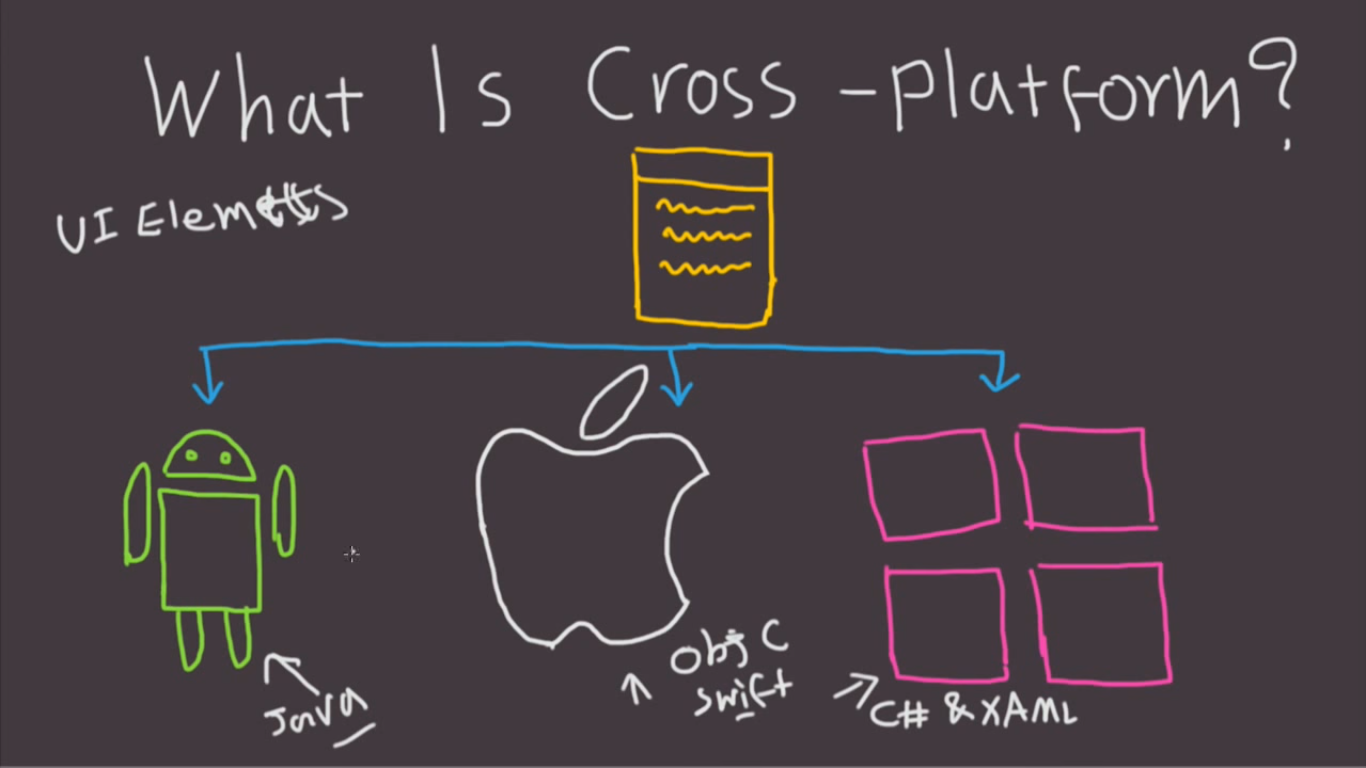 What Is Cross-Platform?
UI Elemetts
Java
Obj C
Swift
C# & XAML